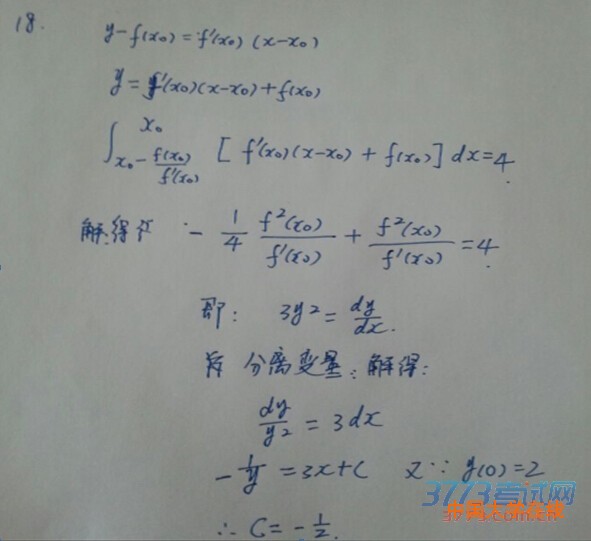 18.
y-f(x₀)=f'(x₀)(x-x₀)
y=f'(x₀)(x-x₀)+f(x₀)
∫_{x₀-f(x₀)/f'(x₀)}^{x₀} [f'(x₀)(x-x₀)+f(x₀)]dx=4
解得 -1/4 f²(x₀)/f'(x₀) + f²(x₀)/f'(x₀) =4
即: 3y²=dy/dx.
分离变量:解得:
dy/y² = 3dx
-1/y =3x+C 又∵ y(0)=2
3773考试网
∴ C=-1/2.